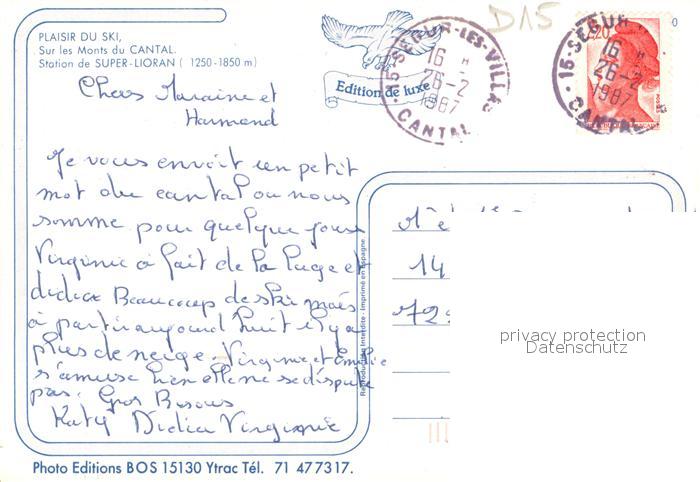 PLAISIR DU SKI,
Sur les Monts du CANTAL.
Station de SUPER-LIORAN ( 1250-1850 m)
Edition de luxe
D15
15-SEGUR-LES-VILLAS
16 H
26-2
1987
CANTAL
15-SEGUR
16 H
26-2
1987
CANTAL
2,20
0
Chers Maraine et
Harmand
Je vous envoit un petit
mot du cantal ou nous
somme pour quelque jours
Virginie à fait de la luge et
didier Beaucoup de ski mais
à partir aujourd huit il y a
plus de neige. Virginie et Emilie
s'amuse bien elle ne se dispute
pas. Gros Bisous
Katy Didier Virginie
14
72
Reproduction Interdite - Imprimé en Espagne
privacy protection
Datenschutz
Photo Editions BOS 15130 Ytrac Tél. 71 477317.